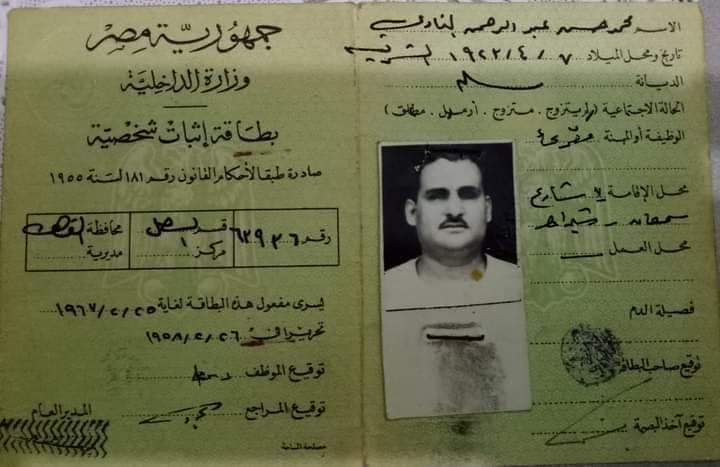 الاسم محمد حسن عبد الرحمن
تاريخ ومحل الميلاد ٧ / ٤ / ١٩٢٢
الديانة مسلم
الحالة الاجتماعية ( لم يتزوج . متزوج . أرمل . مطلق )
الوظيفة أو المهنة
محل الإقامة ٧ شارع
محل العمل
فصيلة الدم
توقيع صاحب البطاقة
توقيع آخذ البصمة
جمهورية مصر
وزارة الداخلية
بطاقة إثبات شخصية
صادرة طبقا لأحكام القانون رقم ١٨١ لسنة ١٩٥٥
رقم ٦٢٩٣٦ قسم محافظة القاهرة
مركز ١ مديرية
يسرى مفعول هذه البطاقة لغاية ٢٥ / ٢ / ١٩٦٧
تحريرا فى ٢٦ / ٢ / ١٩٥٨
توقيع الموظف
توقيع المراجع المدير العام
مصلحة المساحة